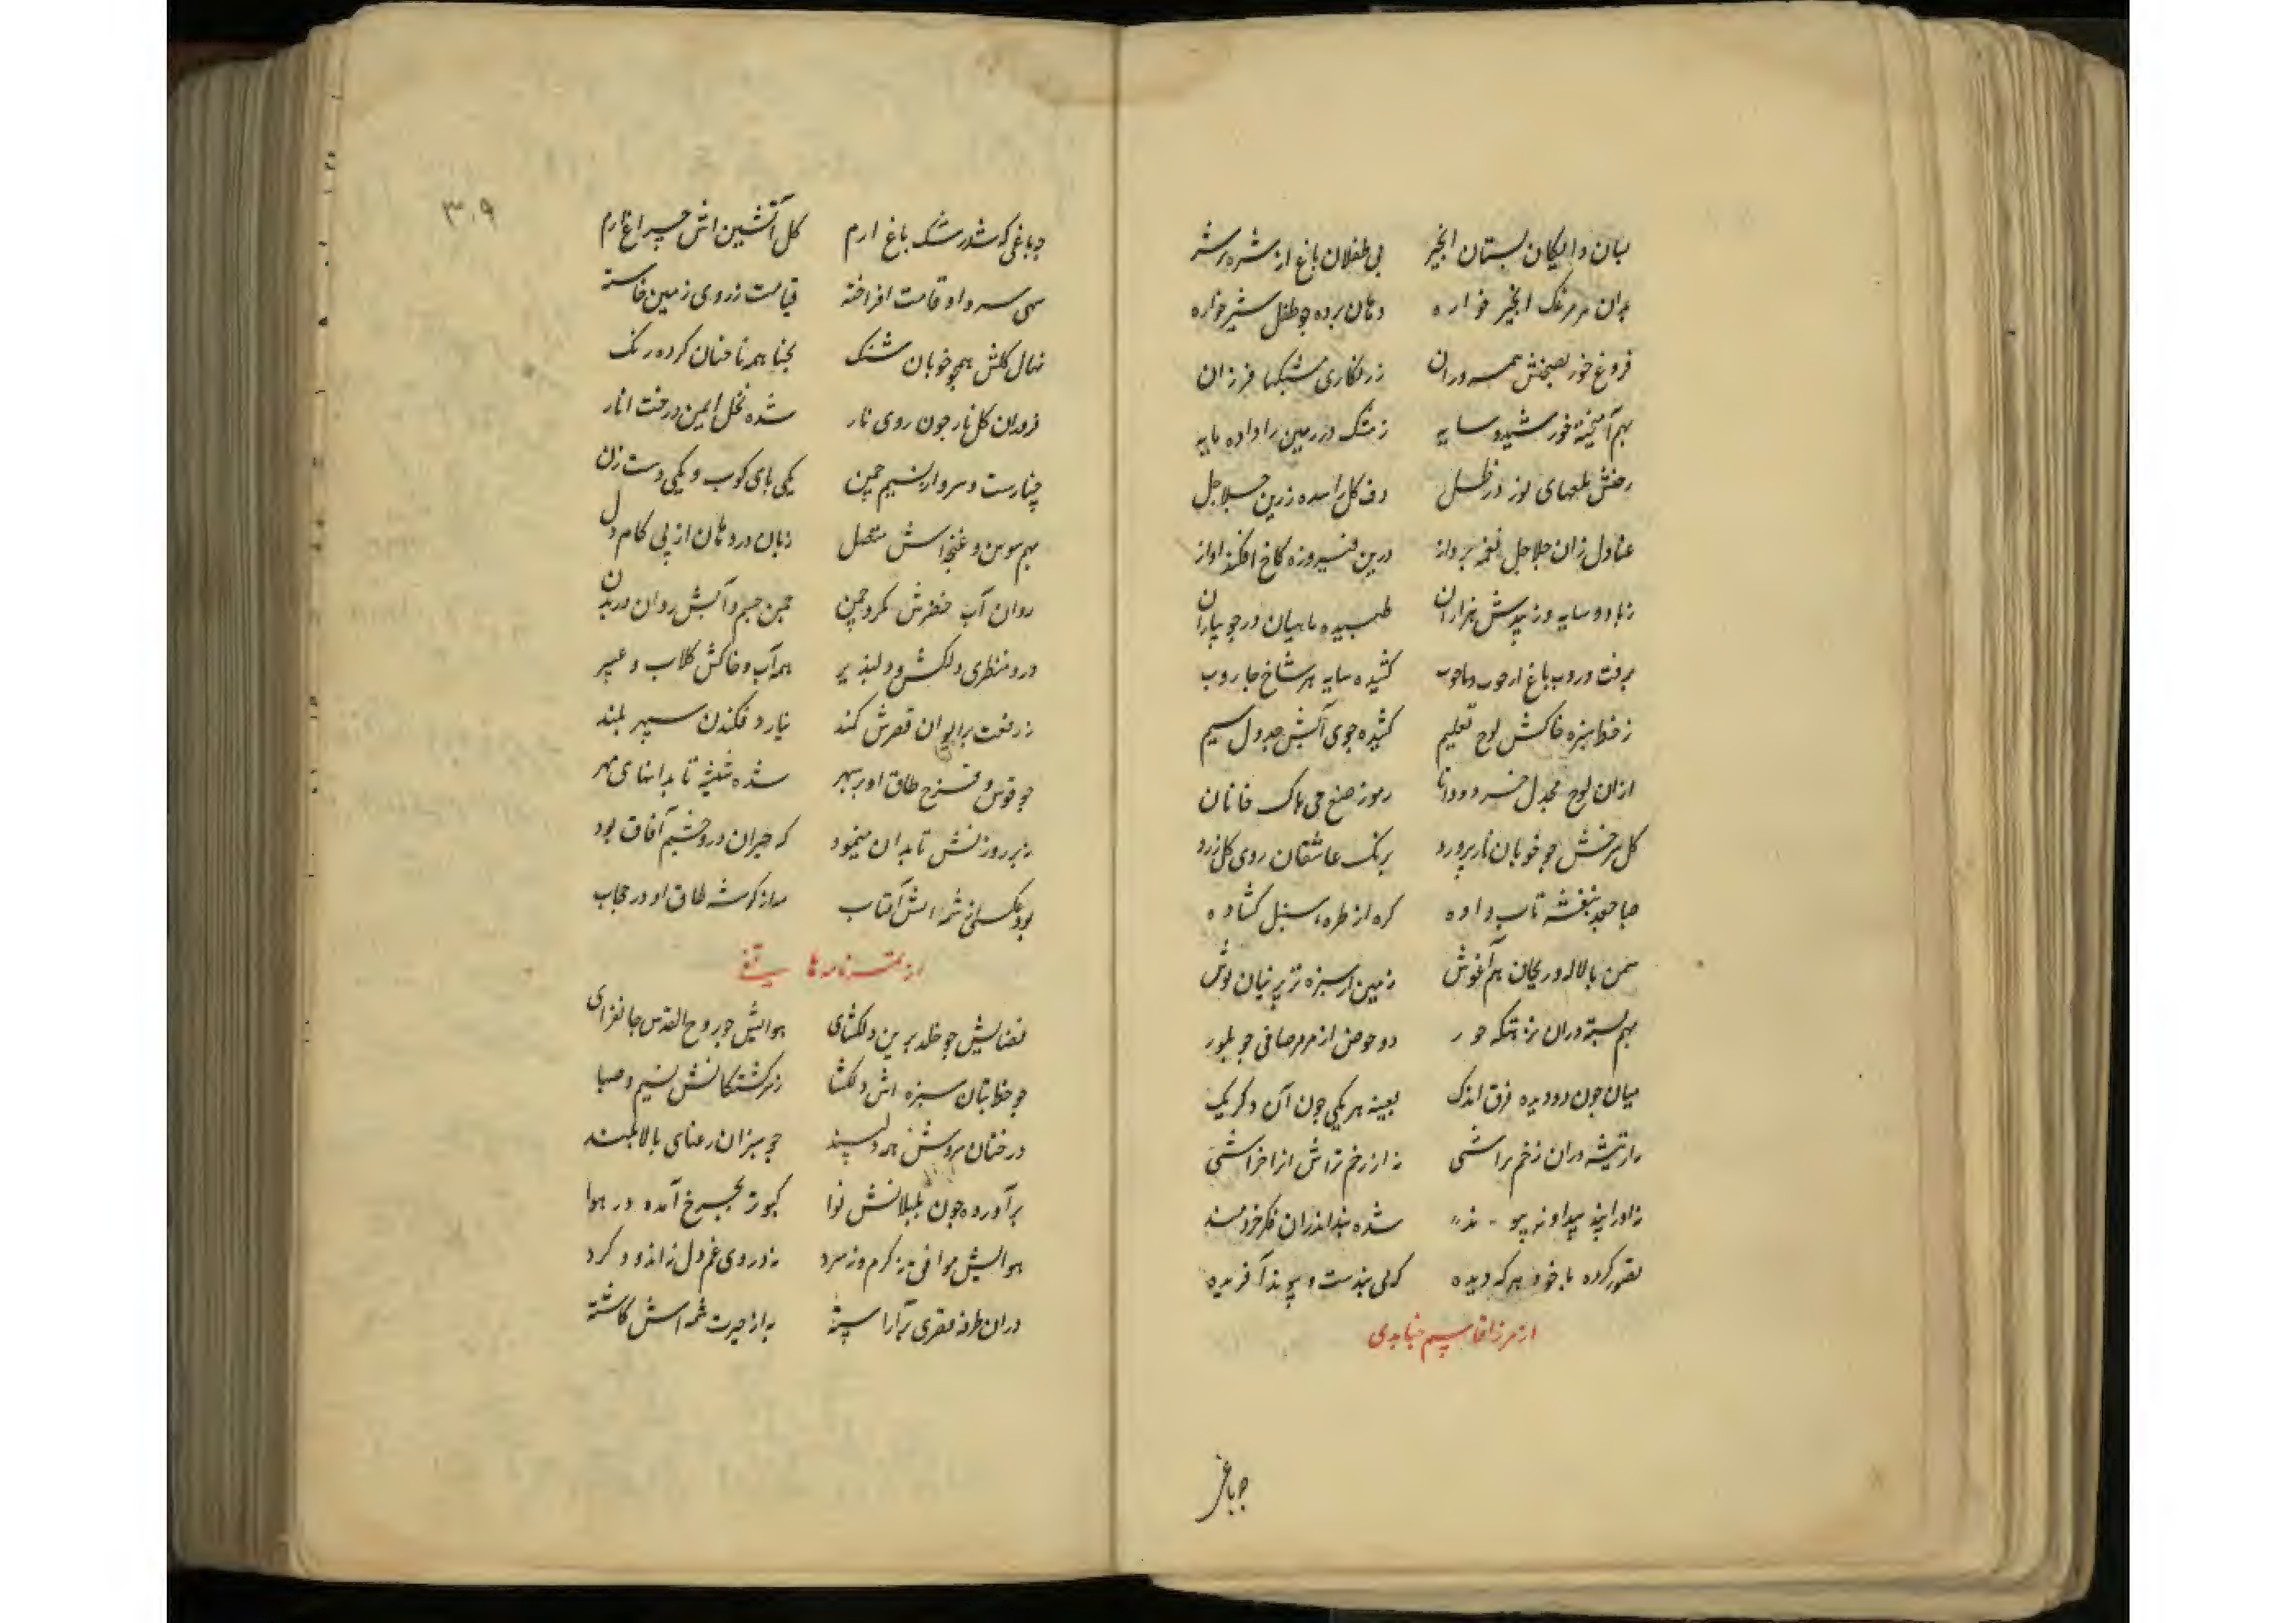 بسان دایکان بستان انجیر پی طفلان باغ از شیره پرشیر
بران هر مرغک انجیر خواره دهان برده چو طفل شیرخواره
فروغ خور بصحنش همسروران ز زنکاری مشبکها فرزان
بهم آمیخته خورشید و سایه ز مشک و زر زمین را داده مایه
نور در ظل دف کل را زرین جلاجل
عنادل زان جلاجل نغمه پرداز درین فیروزه کاخ افکنده اواز
ز باد و سایه در بیدش هزاران طپیده ماهیان در جویباران
برفت و روب باغ از خوب و ناخوب کشیده سایه هر شاخ جاروب
ز خط سبزه خاکش لوح تعلیم کشیده جوی آبش جدول سیم
ازان لوح مجدول خرده دانا رموز صنع حی پاک خانان
کل سرخش چو خوبان ناز پرورد برنک عاشقان روی کل زرد
صبا جعد بنفشه تاب داده کره از طره سنبل کشاده
سمن با لاله و ریحان هم آغوش زمین از سبزه تر پرنیان پوش
بهم بسته دران نزهتکه حور دو حوض از مرمر صافی چو بلور
میان چون دو دیده فرق اندک بعینه هر یکی چون آن دکر یک
نه از تیشه دران زخم تراشی نه از زخم تراش انرا خراشی
شده بند اندران فکر خردمند
تصور کرده با خود هر که دیده که بی بندست و پیوند آفریده
از مرزا قاسم جنابدی
چو باغی
۳۰۹
چو باغی که شد رشک باغ ارم کل آتشین اش چراغ ارم
سهی سرو او قامت افراخته قیامت ز روی زمین خاسته
نهال کلش همچو خوبان شنک بحنا همه ناخنان کرده رنک
فروزان کل نار چون روی نار شده نخل ایمن درخت انار
چنارست و سرو از نسیم چمن یکی پای کوب و یکی دست زن
بهم سوسن و غنچه اش متصل زبان در دهان از پی کام دل
روان آب خضرش بکرد چمن چمن جسم و آبش روان در بدن
درو منظری دلکش و دلپذیر همه آب و خاکش کلاب و عبیر
ز رفعت بر ایوان قصرش کمند نیارد فکندن سپهر بلند
چو قوس و قزح طاق او بر سپهر شده شیشه تابدانهای مهر
ز هر روزنش تابدان مینمود که حیران درو چشم آفاق بود
بود عکسی از شمسه اش آفتاب مه از کوشه طاق او در حجاب
از تمرنامه هاتفی
فضایش چو خلد برین دلکشای هوایش چو روح القدس جانفزای
چو خط بتان سبزه اش دلکشا ز سرکشتکانش نسیم و صبا
درختان سروش همه دلپسند چو سبزان رعنای بالا بلند
برآورده چون بلبلانش نوا کبوتر بچرخ آمده در هوا
هوایش موافق نه کرم و نه سرد ز دروی غم دل نه اندوه و کرد
دران طرفه قصری برآراسته به از حیرت